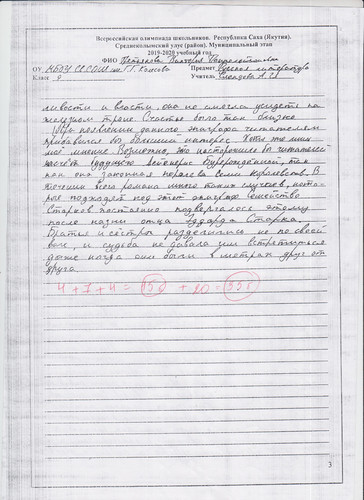 Всероссийская олимпиада школьников. Республика Саха (Якутия).
Среднеколымский улус (район). Муниципальный этап
2019-2020 учебный год
ФИО
ОУ МБОУ СССОШ им. Предмет Русская литература
Класс 9 Учитель
ливости и власти, она не смогла усидеть на
железном троне. Счастье было так близко
При появлении данного эпиграфа читателям
прибавился бы больший интерес. Хотя это лишь
моё мнение. Возможно, это настроило бы читателей
будущую Дейенерис Бурерожденной, так
как она законная королева семи королевств. В
течении всего романа много таких случаев, кото-
рые подходят под этот эпиграф. Семейство
Старков постоянно подвергалось этому
после казни отца Эддарда Старка.
Братья и сёстры разделились не по своей
воле, и судьба не давала им встретиться
даже когда они были в метрах друг от
друга.
4 + 7 + 4 = 15б + 20 = 35б
3